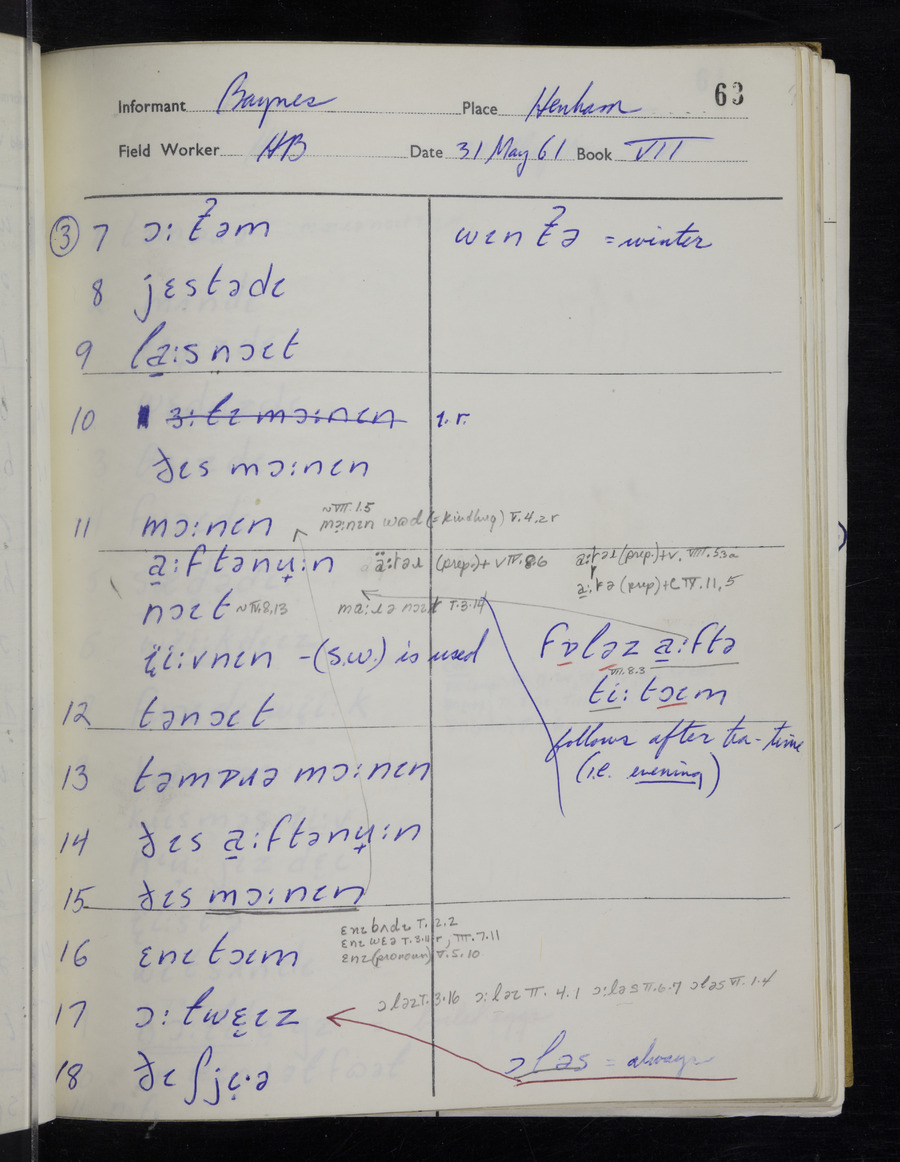 63
Informant Baynes Place Henham
Field Worker HB Date 31 May 61 Book VII
③ 7 ɔ:t̬əm wɪnt̬ə = winter
8 jɛstədɪ
9 la̠:snɔɪt
10 ɜ:lɪ mɔ:nɪn 1. r.
ðɪs mɔ:nɪn
11 mɔ:nɪn
~VII.1.5
mɔ̣:nɪn wʊd (= kindling) V.4.2r
a̠:ftənʉ̟:n ä:təɹ (prep.) + v IV.8.6 a:təɹ (prep.) + v. VIII.5.3a
a̠:ftə (prep) + C IV.11,5
nɔɪt ~VI.8,13 ma:ɹə nɔɪt I.3.14
i̤:vnɪn - (s.w.) is used fɒləz a̠:ftə
VII.8.3
ti:tɔɪm
12 tənɔɪt
follows after tea-time
(i.e. evening)
13 təmɒɹə mɔ:nɪn
14 ðɪs a̠:ftənʉ̟:n
15 ðɪs mɔ:nɪn
16 ɛnɪtɔɪm
ɛnɪbʌdɪ I.2.2
ɛnɪ wɛə I.3.11r, III.7.11
ɛnɪ (pronoun) V.5.10
17 ɔ:ɫwɛ̣ɪz
ɔləz I.3.16 ɔ:ləz II.4.1 ɔ:ləs II.6.7 ɔləs VI.1.4
ɔləs = always
18 ðɪ ʃjɛ̣·ə